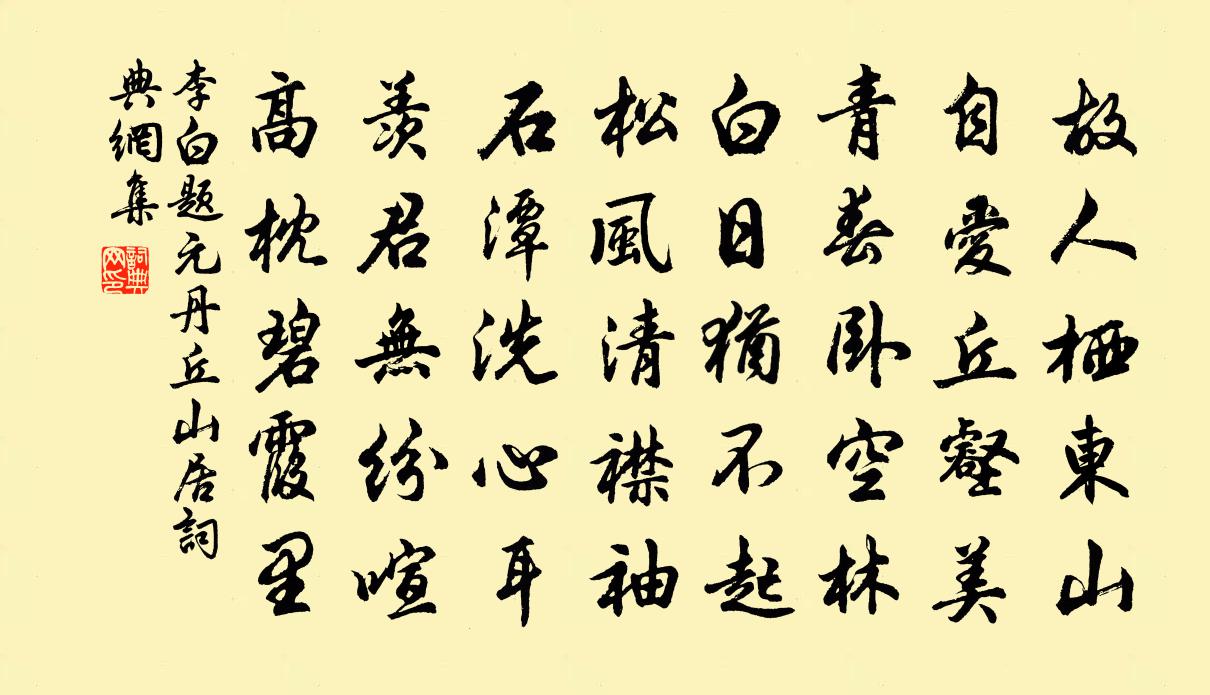 故人栖東山
自愛丘壑美
青春卧空林
白日猶不起
松風清襟袖
石潭洗心耳
羨君無紛喧
高枕碧霞里
李白題元丹丘山居詞
典網集
詞典
网印